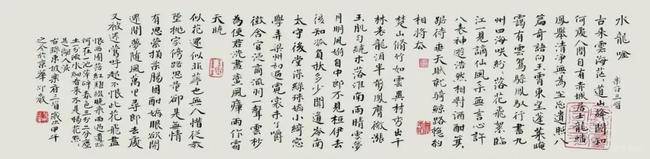 水龍吟 東坡三首
古來雲海茫茫道山絳闕知
何處人間自有赤城居士龍蟠
鳳舉清淨無為坐忘遺照八
篇奇語向玉霄東望蓬萊晻
靄有雲駕驂鳳馭行盡九
州四海笑紛紛落花飛絮臨
江一見謫仙風采無言心許
八表神遊浩然相對酒酣箕
踞待垂天賦就騎鯨路穩約
相將去
楚山修竹如雲異材秀出千
林表龍鬚半翦鳳膺微漲
玉肌勻繞木落淮南雨晴雲夢
月明風嫋自中郎不見桓伊去
後知孤負秋多少聞道嶺南
太守後堂深綠珠嬌小綺窗
學弄梁州初遍霓裳未了嚼
徵含宮泛商流羽一聲雲杪
為使君洗盡蠻風瘴雨作霜
天曉
似花還似非花也無人惜從教
墜拋家傍路思量卻是無情
有思縈損柔腸困酣嬌眼欲
開還閉夢隨風萬里尋郎去處
又被還鶯呼起不恨此花飛盡
恨西園落紅難綴曉來雨過遺蹤
何在一池萍碎春色三分二分塵
土一分流水細看來不是楊花點點
是離人淚
東坡樂府三首歲在甲午
之冬於京華